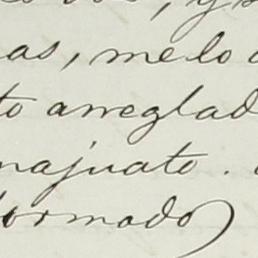 as, me lo
to arreglad
najuato.
formado